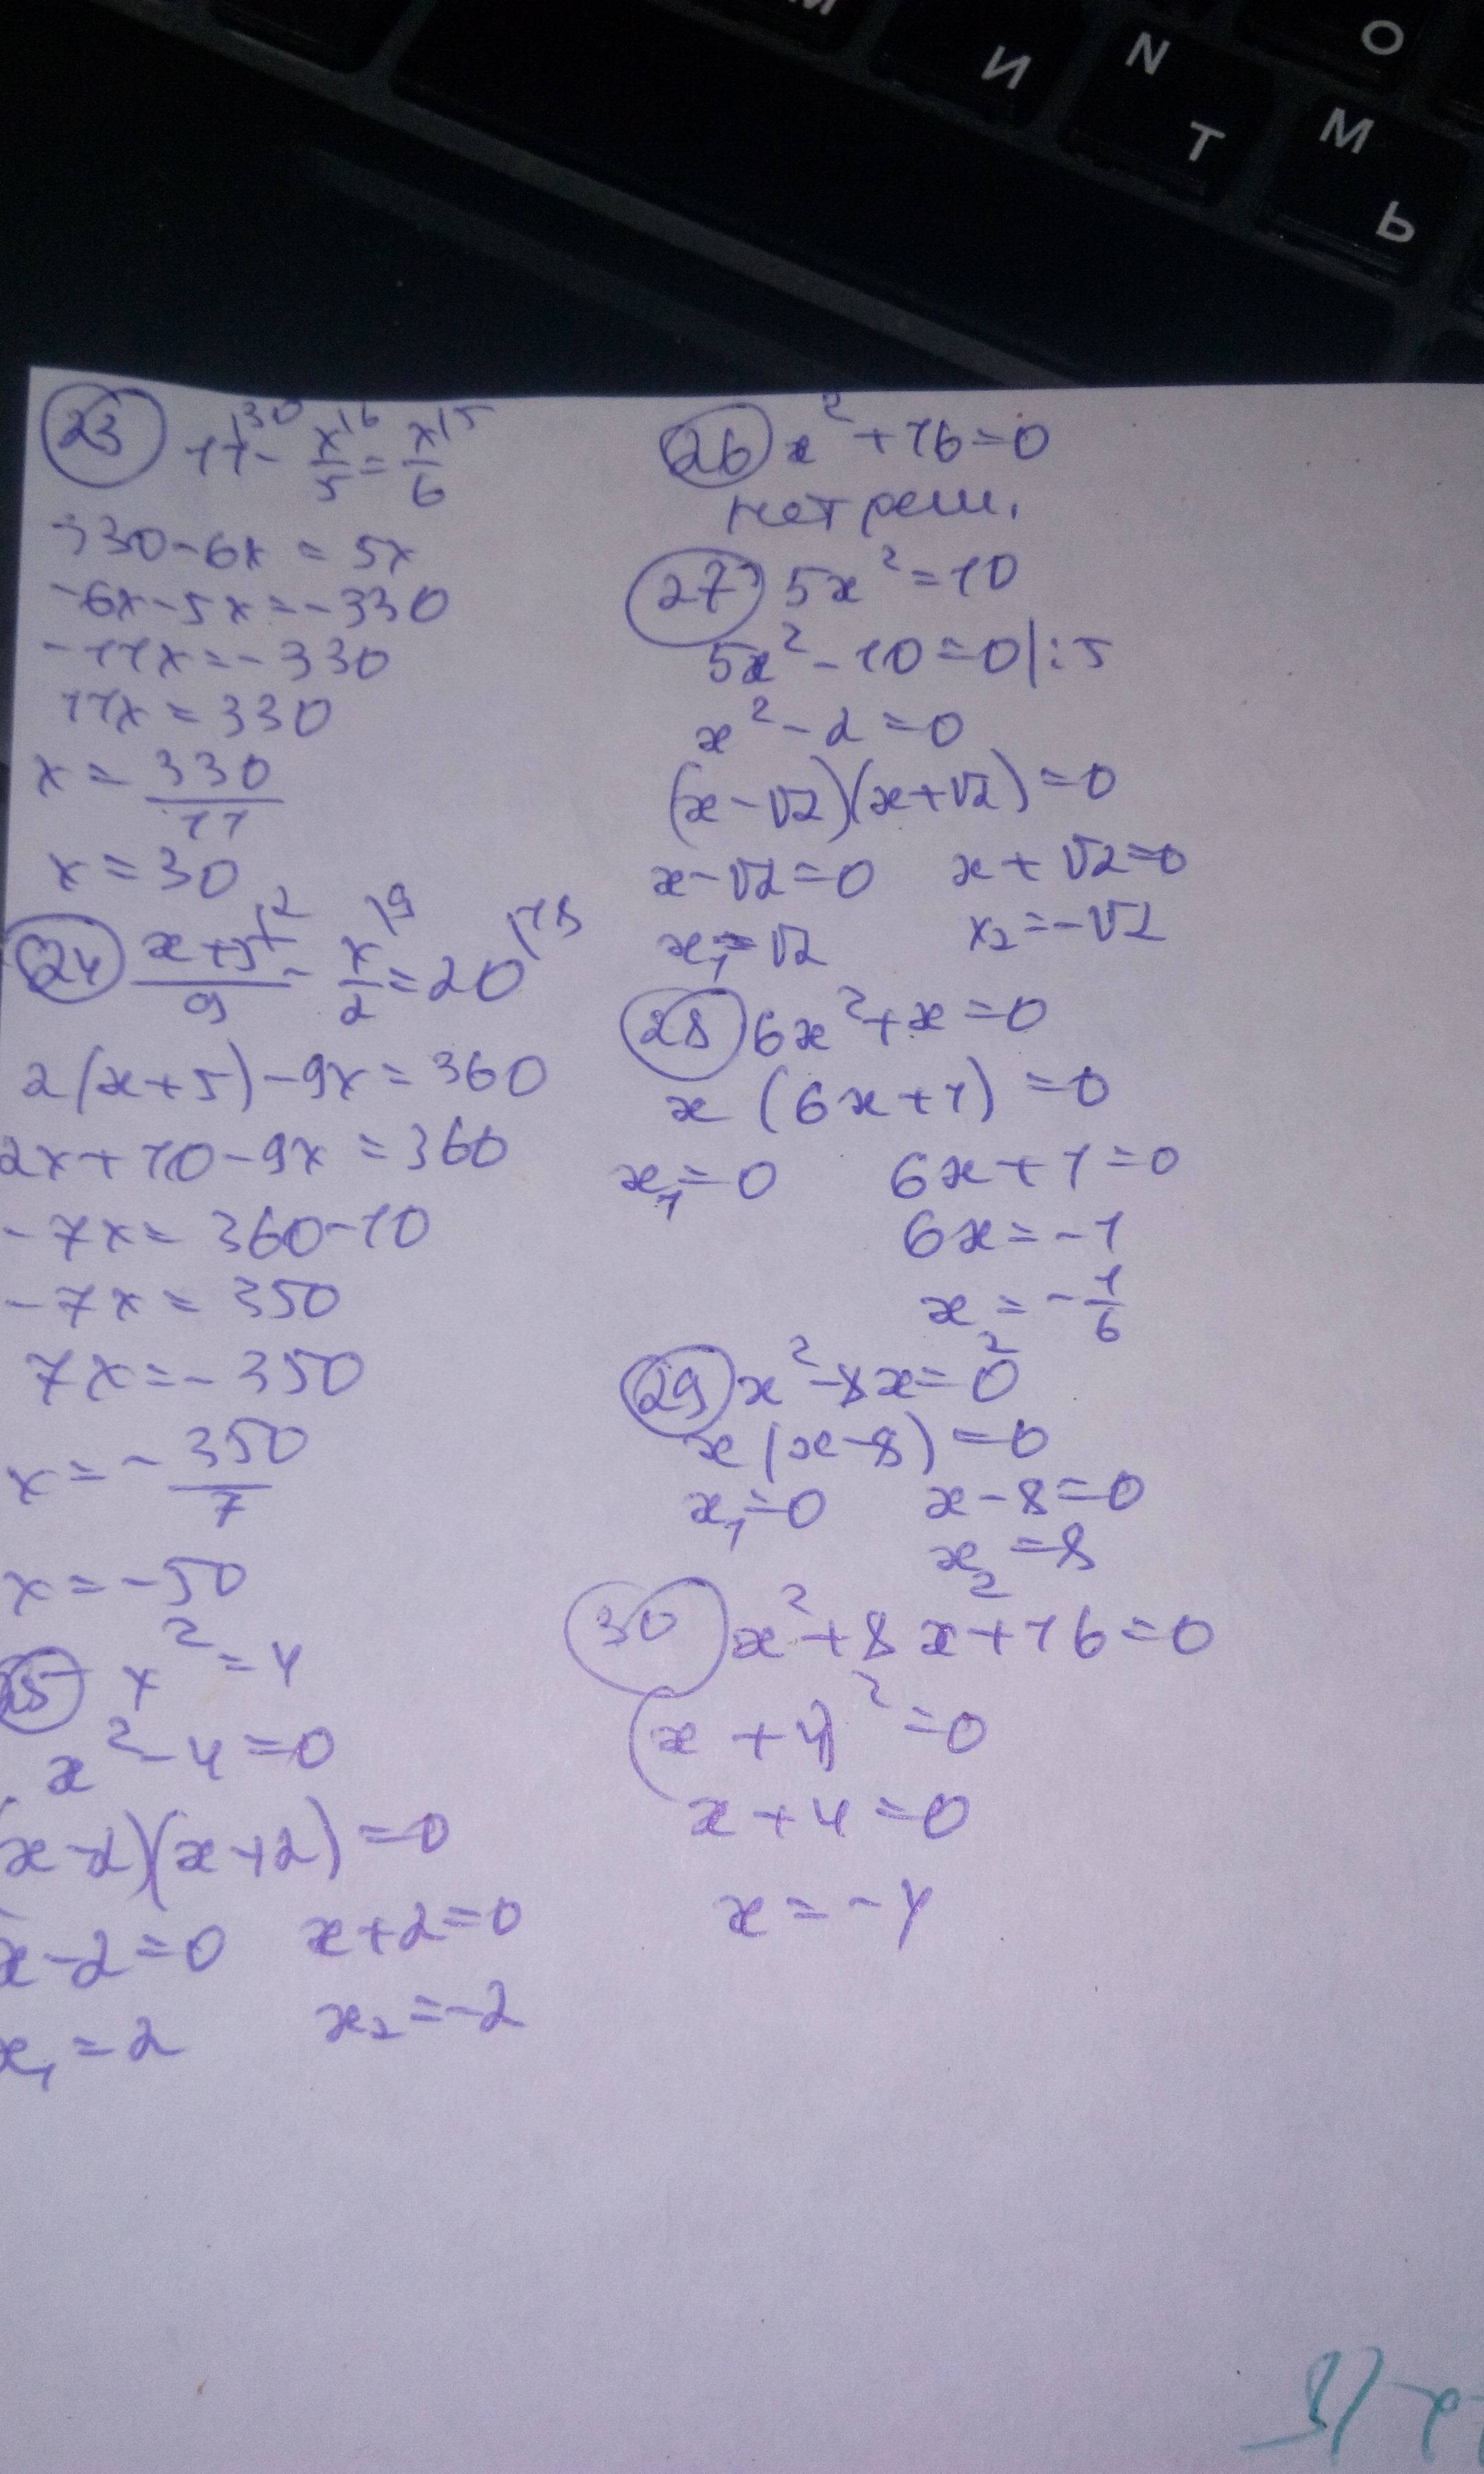 М
И
N
Т
О
М
Ь
23 11|30 - x/5|6 = x/6|5
330-6x = 5x
-6x-5x=-330
-11x=-330
11x=330
x = 330/11
x=30
24 (x+5)/9|2 - x/2|9 = 20|18
2(x+5)-9x=360
2x+10-9x=360
-7x=360-10
-7x=350
7x=-350
x=-350/7
x=-50
25 x²=4
x²-4=0
(x-2)(x+2)=0
x-2=0 x+2=0
x₁=2 x₂=-2
26 x²+16=0
нет реш.
27 5x²=10
5x²-10=0|:5
x²-2=0
(x-√2)(x+√2)=0
x-√2=0 x+√2=0
x₁=√2 x₂=-√2
28 6x²+x=0
x(6x+1)=0
x₁=0 6x+1=0
6x=-1
x₂=-1/6
29 x²-8x=0
x(x-8)=0
x₁=0 x-8=0
x₂=8
30 x²+8x+16=0
(x+4)²=0
x+4=0
x=-4